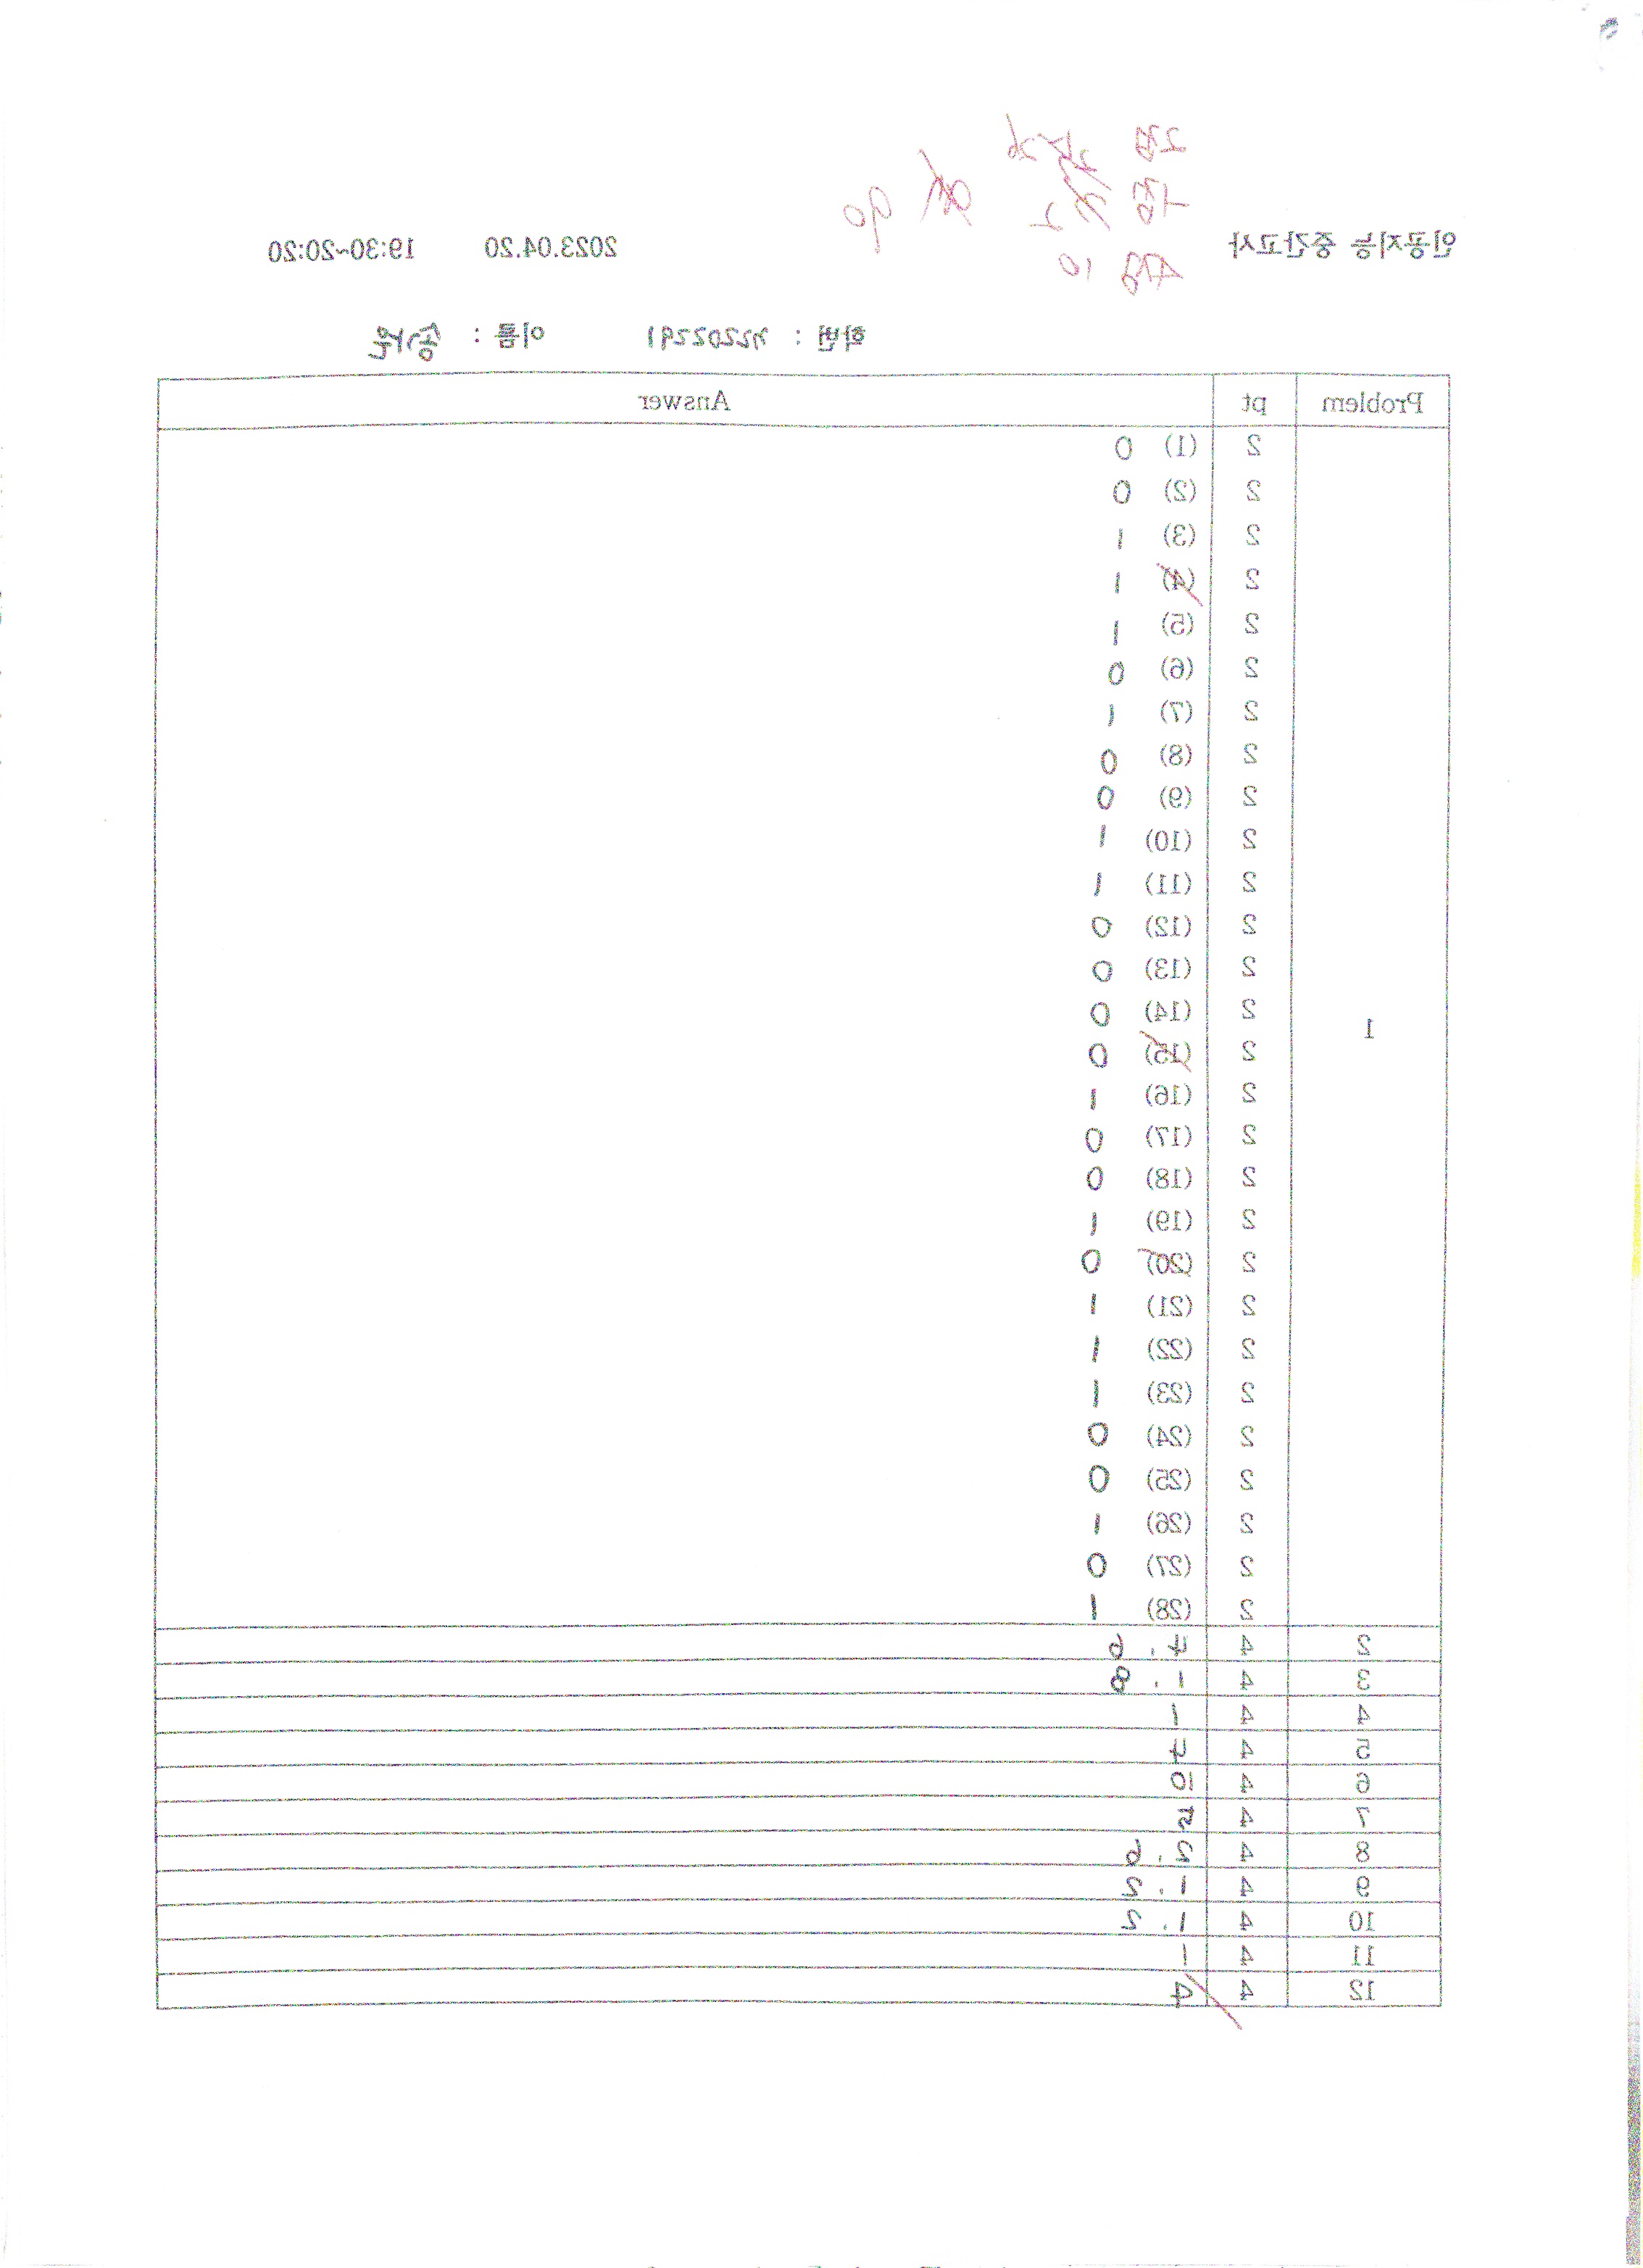 2점 26
1점 2
4점 10
90
인공지능 중간고사 2023.04.20 19:30~20:20
학번 : 이름 :
Problem pt Answer
1
2 (1) 0
2 (2) 0
2 (3) 1
2 (4) 1
2 (5) 1
2 (6) 0
2 (7) 1
2 (8) 0
2 (9) 0
2 (10) 1
2 (11) 1
2 (12) 0
2 (13) 0
2 (14) 0
2 (15) 0
2 (16) 1
2 (17) 0
2 (18) 0
2 (19) 1
2 (20) 0
2 (21) 1
2 (22) 1
2 (23) 1
2 (24) 0
2 (25) 0
2 (26) 1
2 (27) 0
2 (28) 1
2 4 4. 6
3 4 1. 8
4 4 1
5 4 4
6 4 10
7 4 5
8 4 2. 6
9 4 1. 2
10 4 1. 2
11 4 1
12 4 4